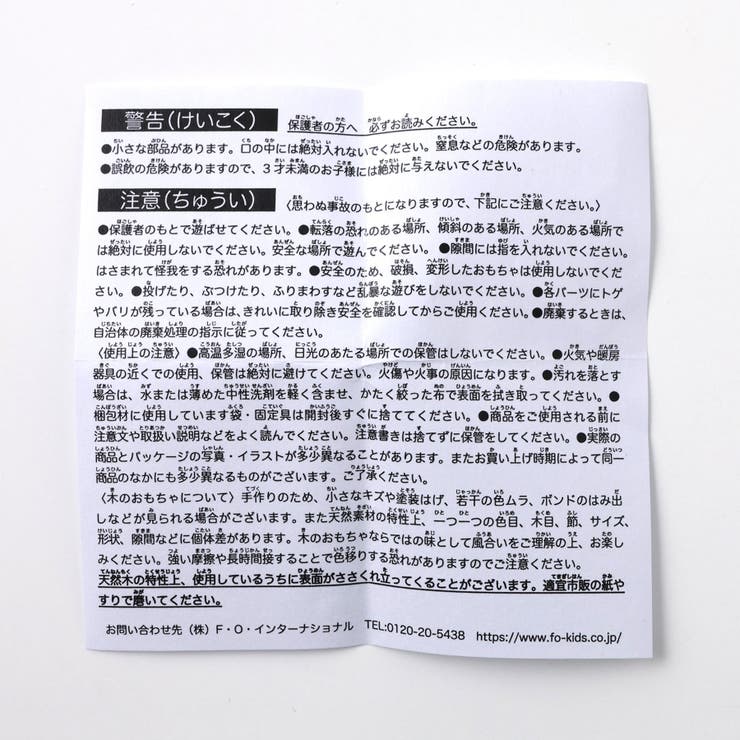 警告(けいこく) 保護者の方へ 必ずお読みください。
●小さな部品があります。口の中には絶対入れないでください。窒息などの危険があります。
●誤飲の危険がありますので、3才未満のお子様には絶対に与えないでください。
注意(ちゅうい) 〈思わぬ事故のもとになりますので、下記にご注意ください。〉
●保護者のもとで遊ばせてください。●転落の恐れのある場所、傾斜のある場所、火気のある場所で
は絶対に使用しないでください。安全な場所で遊んでください。●隙間には指を入れないでください。
はさまれて怪我をする恐れがあります。●安全のため、破損、変形したおもちゃは使用しないでくだ
さい。●投げたり、ぶつけたり、ふりまわすなど乱暴な遊びをしないでください。●各パーツにトゲ
やバリが残っている場合は、きれいに取り除き安全を確認してからご使用ください。●廃棄するときは、
自治体の廃棄処理の指示に従ってください。
〈使用上の注意〉●高温多湿の場所、日光のあたる場所での保管はしないでください。●火気や暖房
器具の近くでの使用、保管は絶対に避けてください。火傷や火事の原因になります。●汚れを落とす
場合は、水または薄めた中性洗剤を軽く含ませ、かたく絞った布で表面を拭き取ってください。●
梱包材に使用しています袋・固定具は開封後すぐに捨ててください。●商品をご使用される前に
注意文や取扱い説明などをよく読んでください。注意書きは捨てずに保管をしてください。●実際の
商品とパッケージの写真・イラストが多少異なることがあります。またお買い上げ時期によって同一
商品のなかにも多少異なるものがございます。ご了承ください。
〈木のおもちゃについて〉手作りのため、小さなキズや塗装はげ、若干の色ムラ、ボンドのはみ出
しなどが見られる場合がございます。また天然素材の特性上、一つ一つの色目、木目、節、サイズ、
形状、隙間などに個体差があります。木のおもちゃならではの味として風合いをご理解の上、お楽し
みください。強い摩擦や長時間接することで色移りする恐れがありますのでご注意ください。
天然木の特性上、使用しているうちに表面がささくれ立ってくることがございます。適宜市販の紙や
すりで磨いてください。
お問い合わせ先(株)F・O・インターナショナル TEL:0120-20-5438 https://www.fo-kids.co.jp/